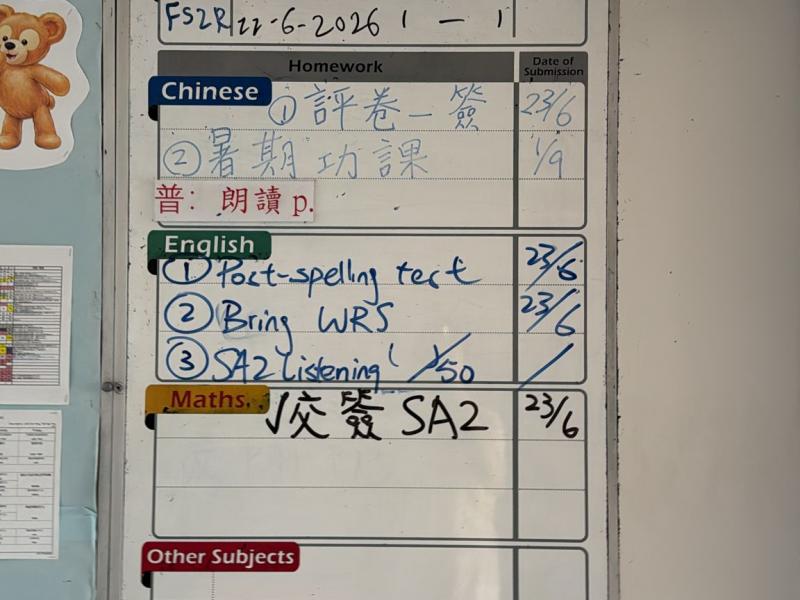 FS2R 22-6-2026 1 — 1
Homework Date of Submission
Chinese
① 評卷一簽 23/6
② 暑期功課 1/9
普: 朗讀 p.
English
① Post-spelling test 23/6
② Bring WRS 23/6
③ SA2 Listening ( /50 /
Maths
√交簽 SA2 23/6
Other Subjects